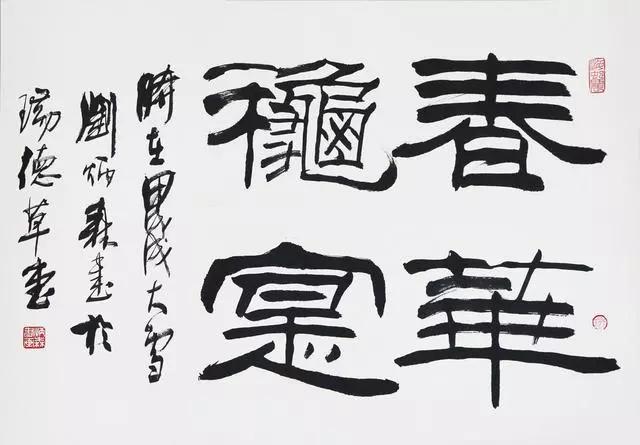 春華
龝寔
時在甲戌大雪
劉炳森書於
瑞德草堂